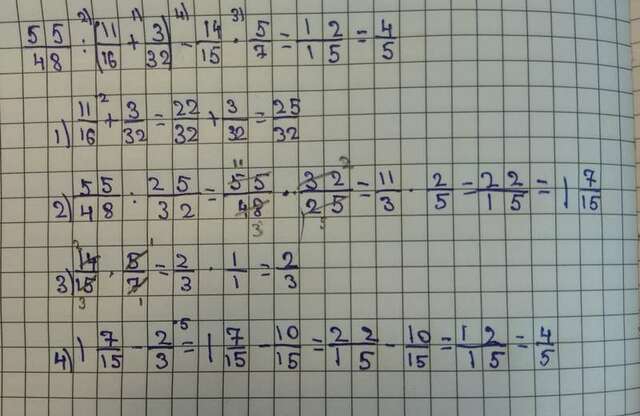 55/48 :²⁾ (11/16 +¹⁾ 3/32) -⁴⁾ 14/15 ·³⁾ 5/7 = 12/15 = 4/5
1) 11/16 ² + 3/32 = 22/32 + 3/32 = 25/32
2) 55/48 : 25/32 = 55/48 · 32/25 = 11/3 · 2/5 = 22/15 = 1 7/15
3) 14/15 · 5/7 = 2/3 · 1/1 = 2/3
4) 1 7/15 - 2/3 ⁵ = 1 7/15 - 10/15 = 22/15 - 10/15 = 12/15 = 4/5